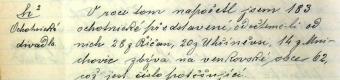 Ochotnická
divadla.
V roce tom napočetl jsem 183
ochotnické představení, odečteme-li od
nich 28 z Říčan, 20 z Uhříněvsi, 14 z Mni-
chovic zbývá na venkovské obce 62,
což jest číslo potěšující.